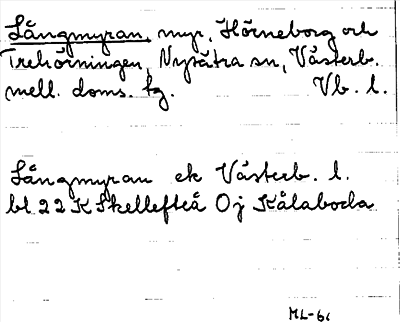 Långmyran, myr, Hörneborg och
Trehörningen, Nysätra sn, Västerb.
mell. doms. tg. Vb. l.
Långmyran ek Västerb. l.
bl 22 K Skellefteå 0j Kålaboda
ML-61